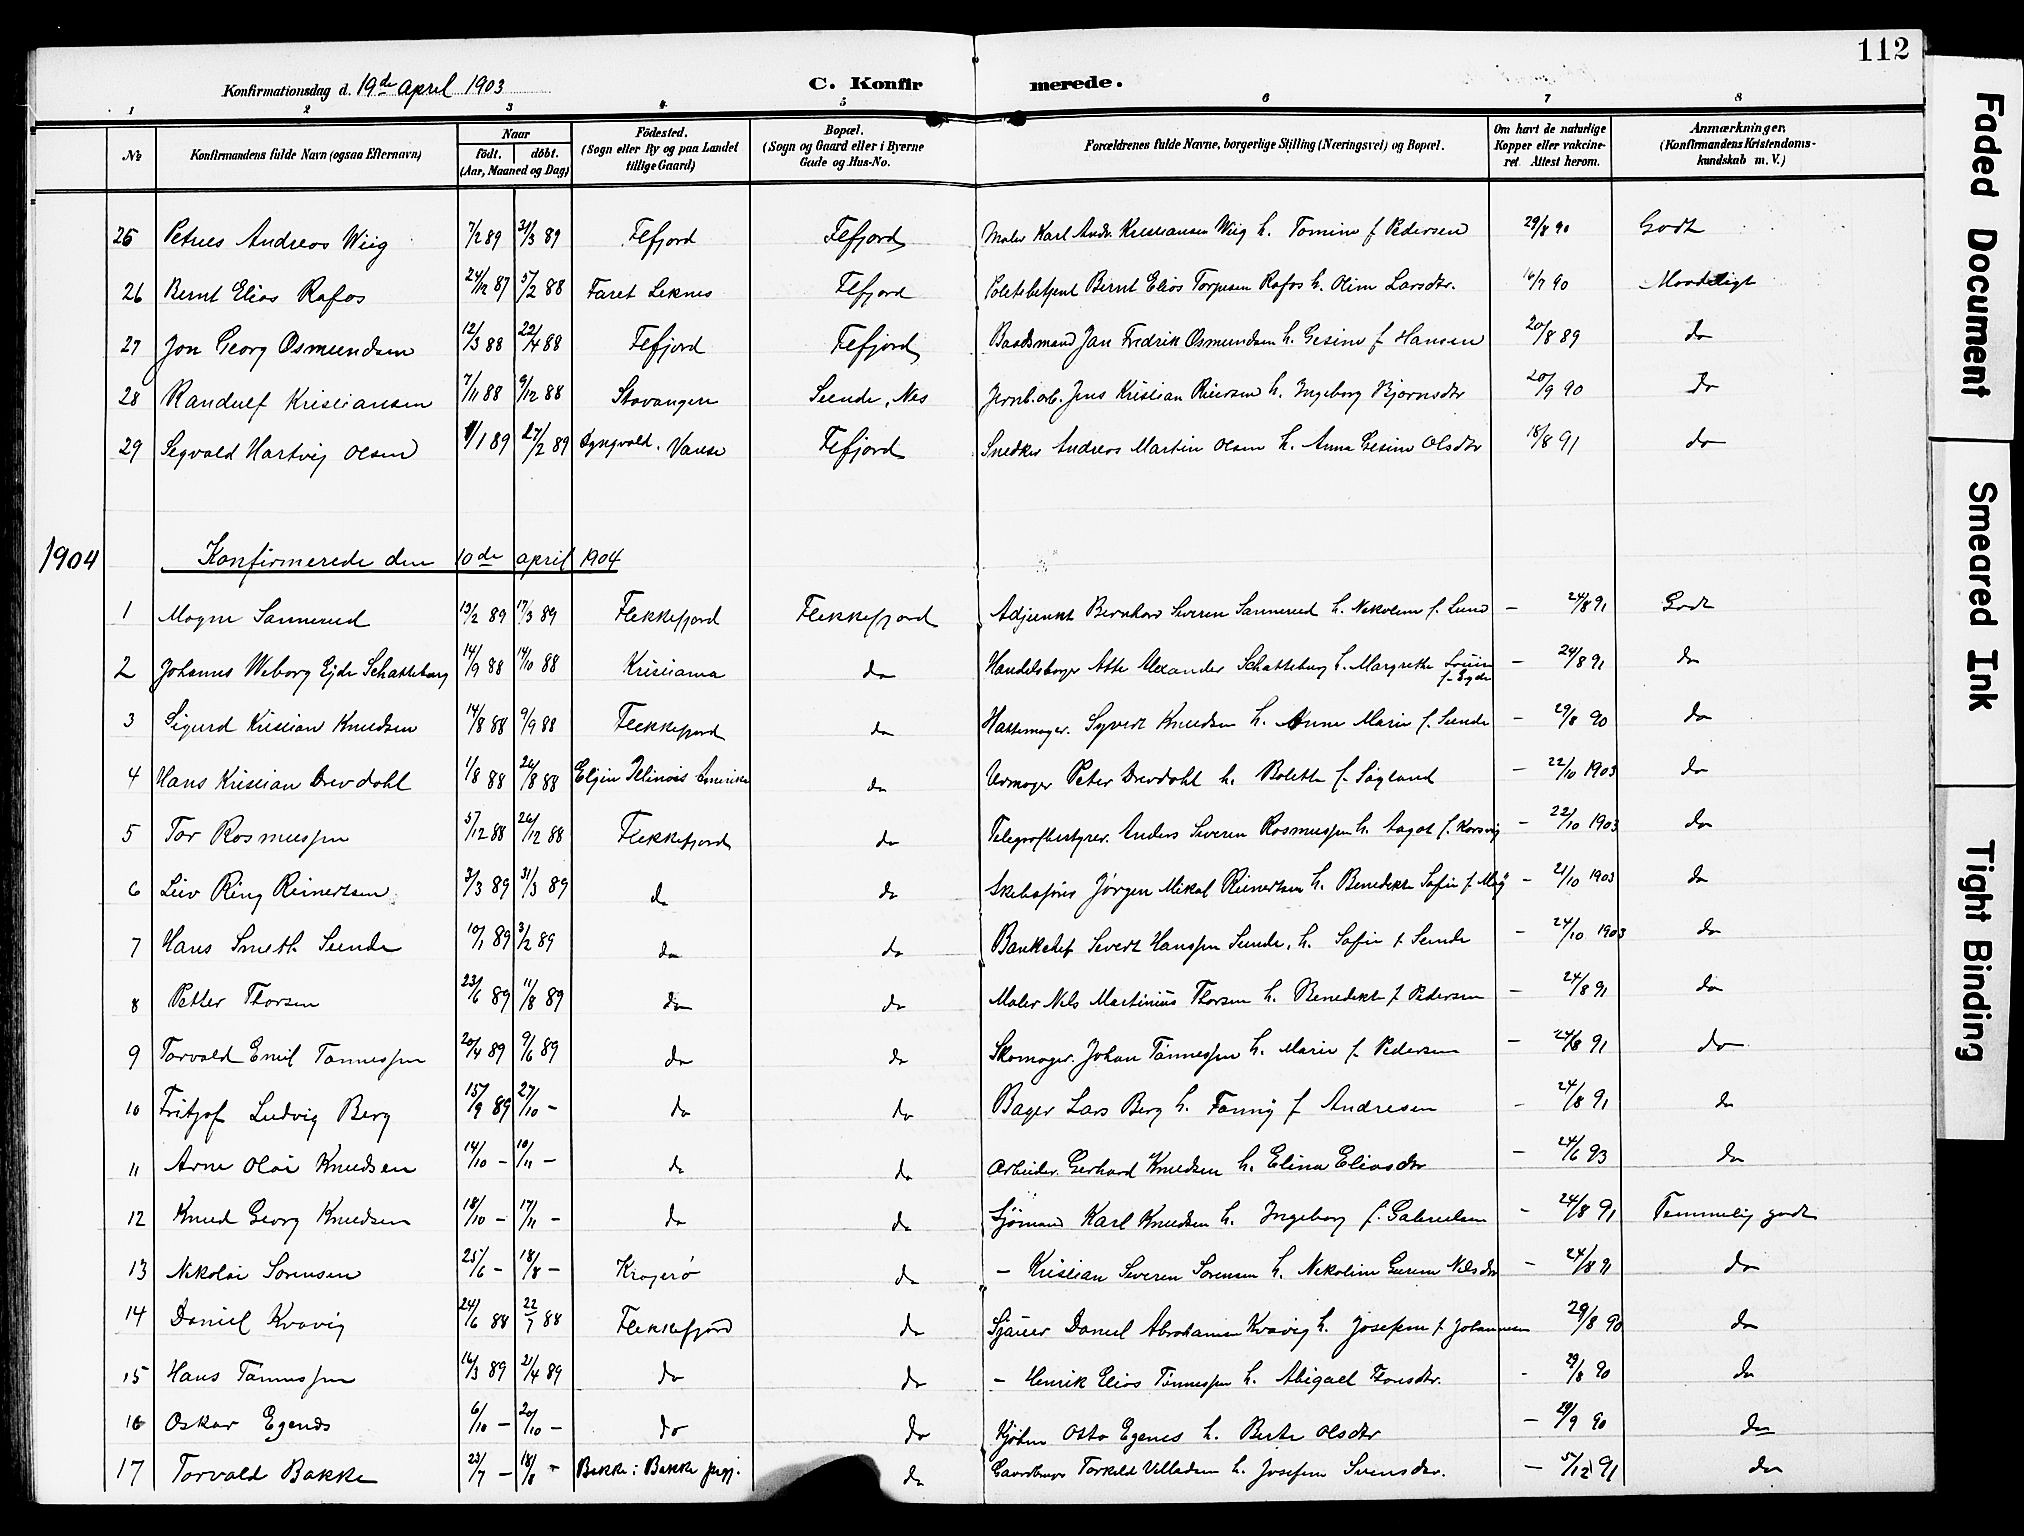 112
Konfirmationsdag d. 19de april 1903
C. Konfirmerede.
1 2 3 4 5 6 7 8
No Konfirmandens fulde Navn (ogsaa Efternavn) Naar födt. döbt. (Aar, Maaned og Dag) Födested. (Sogn eller By og paa Landet tillige Gaard) Bopæl. (Sogn og Gaard eller i Byerne Gade og Hus-No. Forældrenes fulde Navne, borgerlige Stilling (Næringsvei) og Bopæl. Om havt de naturlige Kopper eller vakcineret. Attest herom. Anmærkninger. (Konfirmandens Kristendomskundskab m. V.)
25 Petrus Andreas Wiig 7/2 89 31/3 89 Fefjord Fefjord Maler Karl Andr. Kristiansen Wiig h. Tomine f Pedersen 29/8 90 Godt
26 Bernt Elias Rafos 24/12 87 5/2 88 Faret Leknes Fefjord Politibetjent Bernt Elias Torjusen Rafos h. Oline Larsdtr. 16/7 90 Maadeligt
27 Jon Georg Osmundsen 12/3 88 22/4 88 Fefjord Fefjord Baadsmand Jan Fredrik Osmundsen h. Gesine f Hansen 20/8 89 do
28 Randulf Kristiansen 7/11 88 9/12 88 Stavangern Sunde, Nes Jernb.arb. Jens Kristian Reiersen h. Ingeborg Bjornsdtr 20/9 90 do
29 Segvald Hartvig Olsen 1/1 89 27/2 89 Lyngvold. Vanse Fefjord Snedker Andreas Martin Olsen h. Anna Gesine Olsdtr 18/8 91 do
1904 Konfirmerede den 10de april 1904
1 Magne Sannerud 19/2 89 17/3 89 Flekkefjord Flekkefjord Adjunkt Bernhard Severin Sannerud h. Nikoline f. Lund – 24/8 91 Godt
2 Johannes Weborg Ejde Schatteburg 14/9 88 14/10 88 Kristiania do Handelsborger Atte Alexander Schatteburg h. Margrethe Louise f. Eyde – 24/8 91 do
3 Sigurd Kristian Knudsen 14/8 88 9/9 88 Flekkefjord do Hattemager. Syvert Knudsen h. Anne Marie f. Sunde – 29/8 90 do
4 Hans Kristian Drevdahl 1/8 88 26/8 88 Elgin Illinois Amerika do Urmager Peter Drevdahl h. Bolette f. Søgland – 22/10 1903 do
5 Tor Rasmussen 5/12 88 26/12 88 Flekkefjord do Telegrafbestyrer. Anders Severin Rasmussen h. Aagot f. Korsvig – 22/10 1903 do
6 Leiv Ring Reinertsen 3/3 89 31/3 89 do do Skibsfører Jörgen Mikal Reinertsen h. Benedikte Sofie f. – 21/10 1903 do
7 Hans Smeth Sunde 10/1 89 3/2 89 do do Bankchef Severt Hanssen Sunde, h. Sofie f. Sunde – 24/10 1903 do
8 Petter Thorsen 23/6 89 11/8 89 do do Maler Nils Martinius Thorsen h. Benedikte f. Pedersen – 24/8 91 do
9 Torvald Emil Tønnessen 20/4 89 9/6 89 do do Skomager. Johan Tønnessen h. Marie f. Pedersen – 24/8 91 do
10 Fritjof Ludvig Berg 15/9 89 27/10 – do do Bager Lars Berg h. Fanny f Andresen – 24/8 91 do
11 Arne Olai Knudsen 14/10 – 10/11 – do do Arbeider. Gerhard Knudsen h. Elina Eliasdtr – 24/6 93 do
12 Knud Georg Knudsen 18/10 – 17/11 – do do Sjømand Karl Knudsen h. Ingeborg f. Gabrielsen – 24/8 91 Temmelig godt
13 Nikolai Sørensen 25/6 – 18/8 – Kragerö do – Kristian Severin Sørensen h. Nikoline Gurine Nilsdtr – 24/8 91 do
14 Daniel Kvavig 24/6 88 22/7 88 Flekkefjord do Sjauer Daniel Abrahamsen Kvavig h. Josefine f. Johannesen 29/8 90 do
15 Hans Tønnessen 16/3 89 21/4 89 do do – Henrik Elias Tønnessen h. Abigael Tonsdtr. - 29/8 90 do
16 Oskar Egenes 6/10 – 20/10 – do do Kjøbm Otto Egenes h. Berte Olsdtr – 29/9 90 do
17 Torvald Bakke 23/7 – 18/8 – Bakke i Bakke pgj. do Gaardbruger Torkild Villadsen h. Josefine Svensdtr. – 5/12 91 do
Faded Document
Smeared Ink
Tight Binding